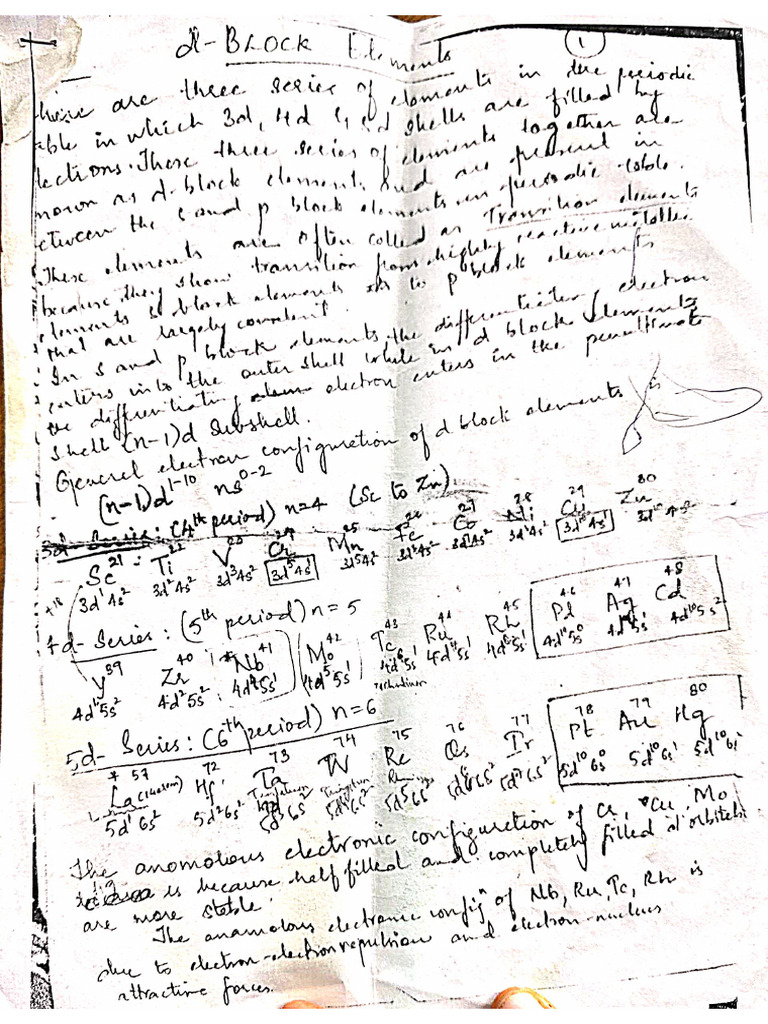 d-BLOCK Elements
1
There are three series of elements in the periodic
table in which 3d, 4d & 5d shells are filled by
electrons. These three series of elements together are
known as d-block elements and are present in
between the s and p block elements in periodic table.
These elements are often called as Transition elements
because they show transition from highly reactive metallic
elements s block elements to p block elements
that are largely covalent.
In s and p block elements the differentiating electron
enters into the outer shell while in d block elements
the differentiating electron enters in the penultimate
shell (n-1)d subshell.
General electron configuration of d block elements is
(n-1)d1-10 ns0-2
3d-Series: (4th period) n=4 (Sc to Zn)
Sc21 Ti22 V23 Cr24 Mn25 Fe26 Co27 Ni28 Cu29 Zn30
+18 3d14s2 3d24s2 3d34s2 3d54s1 3d54s2 3d64s2 3d74s2 3d84s2 3d104s1 3d104s2
4d-Series: (5th period) n=5
Y39 Zr40 Nb41 Mo42 Tc43 Ru44 Rh45 Pd46 Ag47 Cd48
4d15s2 4d25s2 4d45s1 4d55s1 4d65s1 4d75s1 4d85s1 4d105s0 4d105s1 4d105s2
5d-Series: (6th period) n=6
57 72 73 74 75 76 77 78 79 80
La Hf Ta W Re Os Ir Pt Au Hg
5d16s2 5d26s2 5d36s2 5d46s2 5d56s2 5d66s2 5d76s2 5d106s0 5d106s1 5d106s
The anomolous electronic configuration of Cr, Cu, Mo
is because half filled and completely filled d orbitals
are more stable.
The anamolous electronic confign of Nb, Ru, Tc, Rh is
due to electron-electron repulsion and electron-nucleus
attractive forces.